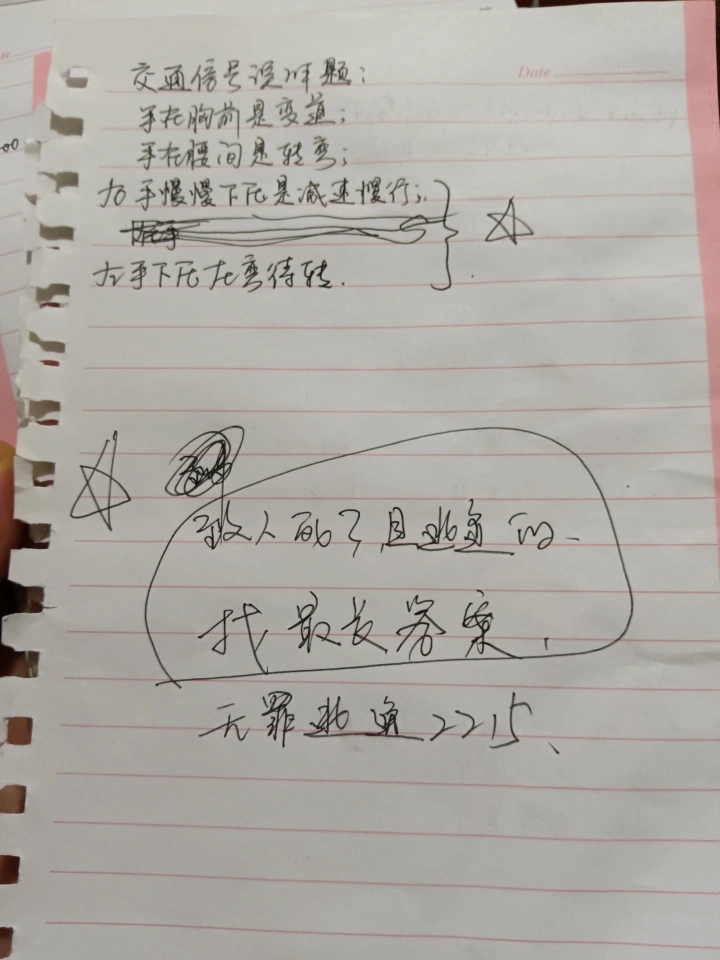 Date
交通信号误以题：
手在胸前是变道；
手在腰间是转弯；
右手慢慢下压是减速慢行；
左手下压左弯待转.
致人死了且逃逸的、
找最长答案.
无罪逃逸2215、